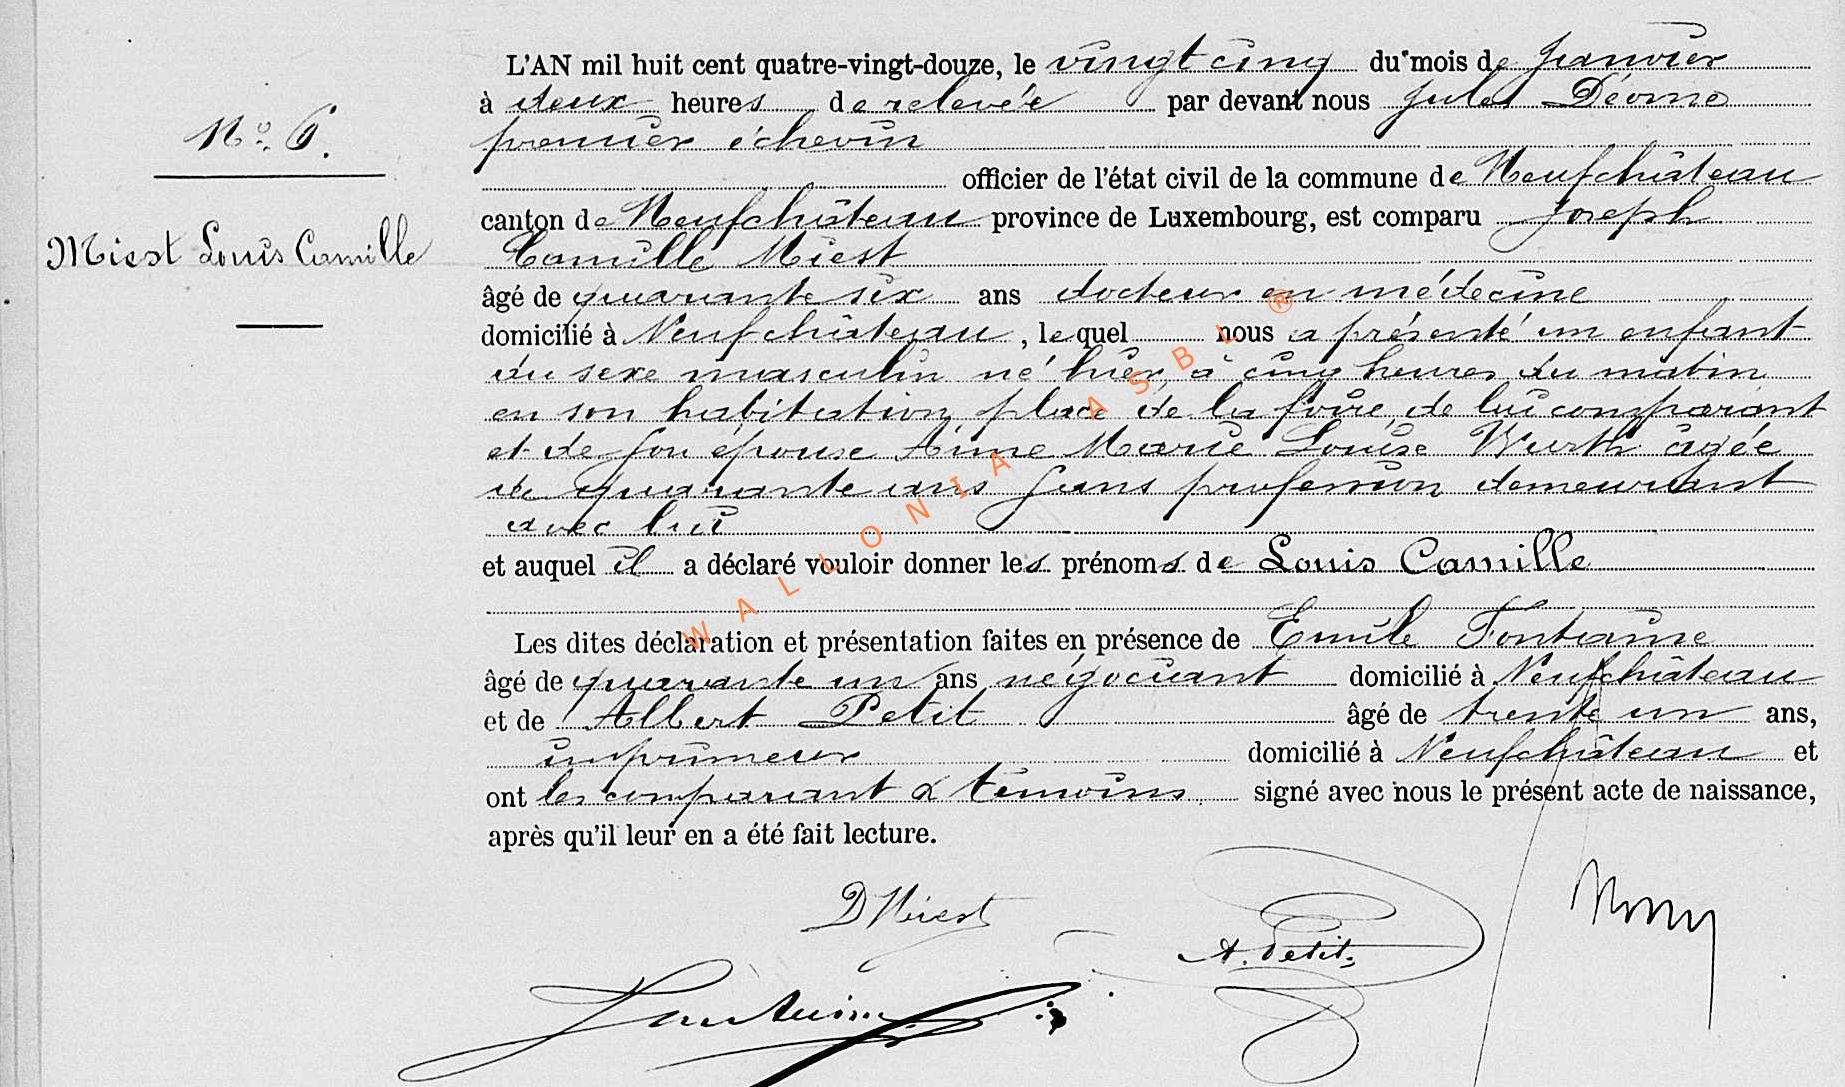 L'AN mil huit cent quatre-vingt-douze, le vingt cinq du mois de Janvier
à deux heures de relevée par devant nous Jules Déome
premier échevin
officier de l'état civil de la commune de Neufchâteau
canton de Neufchâteau province de Luxembourg, est comparu Joseph
Camille Miest
âgé de quarante six ans docteur en médecine
domicilié à Neufchâteau, lequel nous a présenté un enfant
du sexe masculin né hier, à cinq heures du matin
en son habitation, place de la foire, de lui comparant
et de son épouse Anne Marie Louise Wurth âgée
de quarante ans sans profession demeurant
avec lui
et auquel il a déclaré vouloir donner les prénoms de Louis Camille
Les dites déclaration et présentation faites en présence de Emile Fontaine
âgé de quarante un ans négociant domicilié à Neufchâteau
et de Albert Petit âgé de trente un ans,
imprimeur domicilié à Neufchâteau et
ont les comparant & témoins signé avec nous le présent acte de naissance,
après qu'il leur en a été fait lecture.
N° 6.
Miest Louis Camille
D Miest
A. Petit
Fontaine
WALLONIA ASBL ®